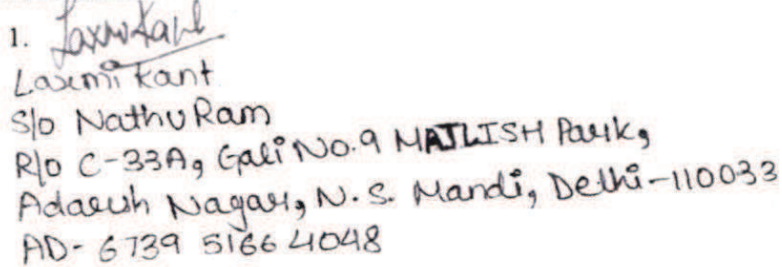 1. Laxmikant
Laxmi Kant
S/o Nathu Ram
R/o C-33A, Gali No.9 MAJLISH Park,
Adarsh Nagar, N.S. Mandi, Delhi-110033
AD- 6739 5166 4048